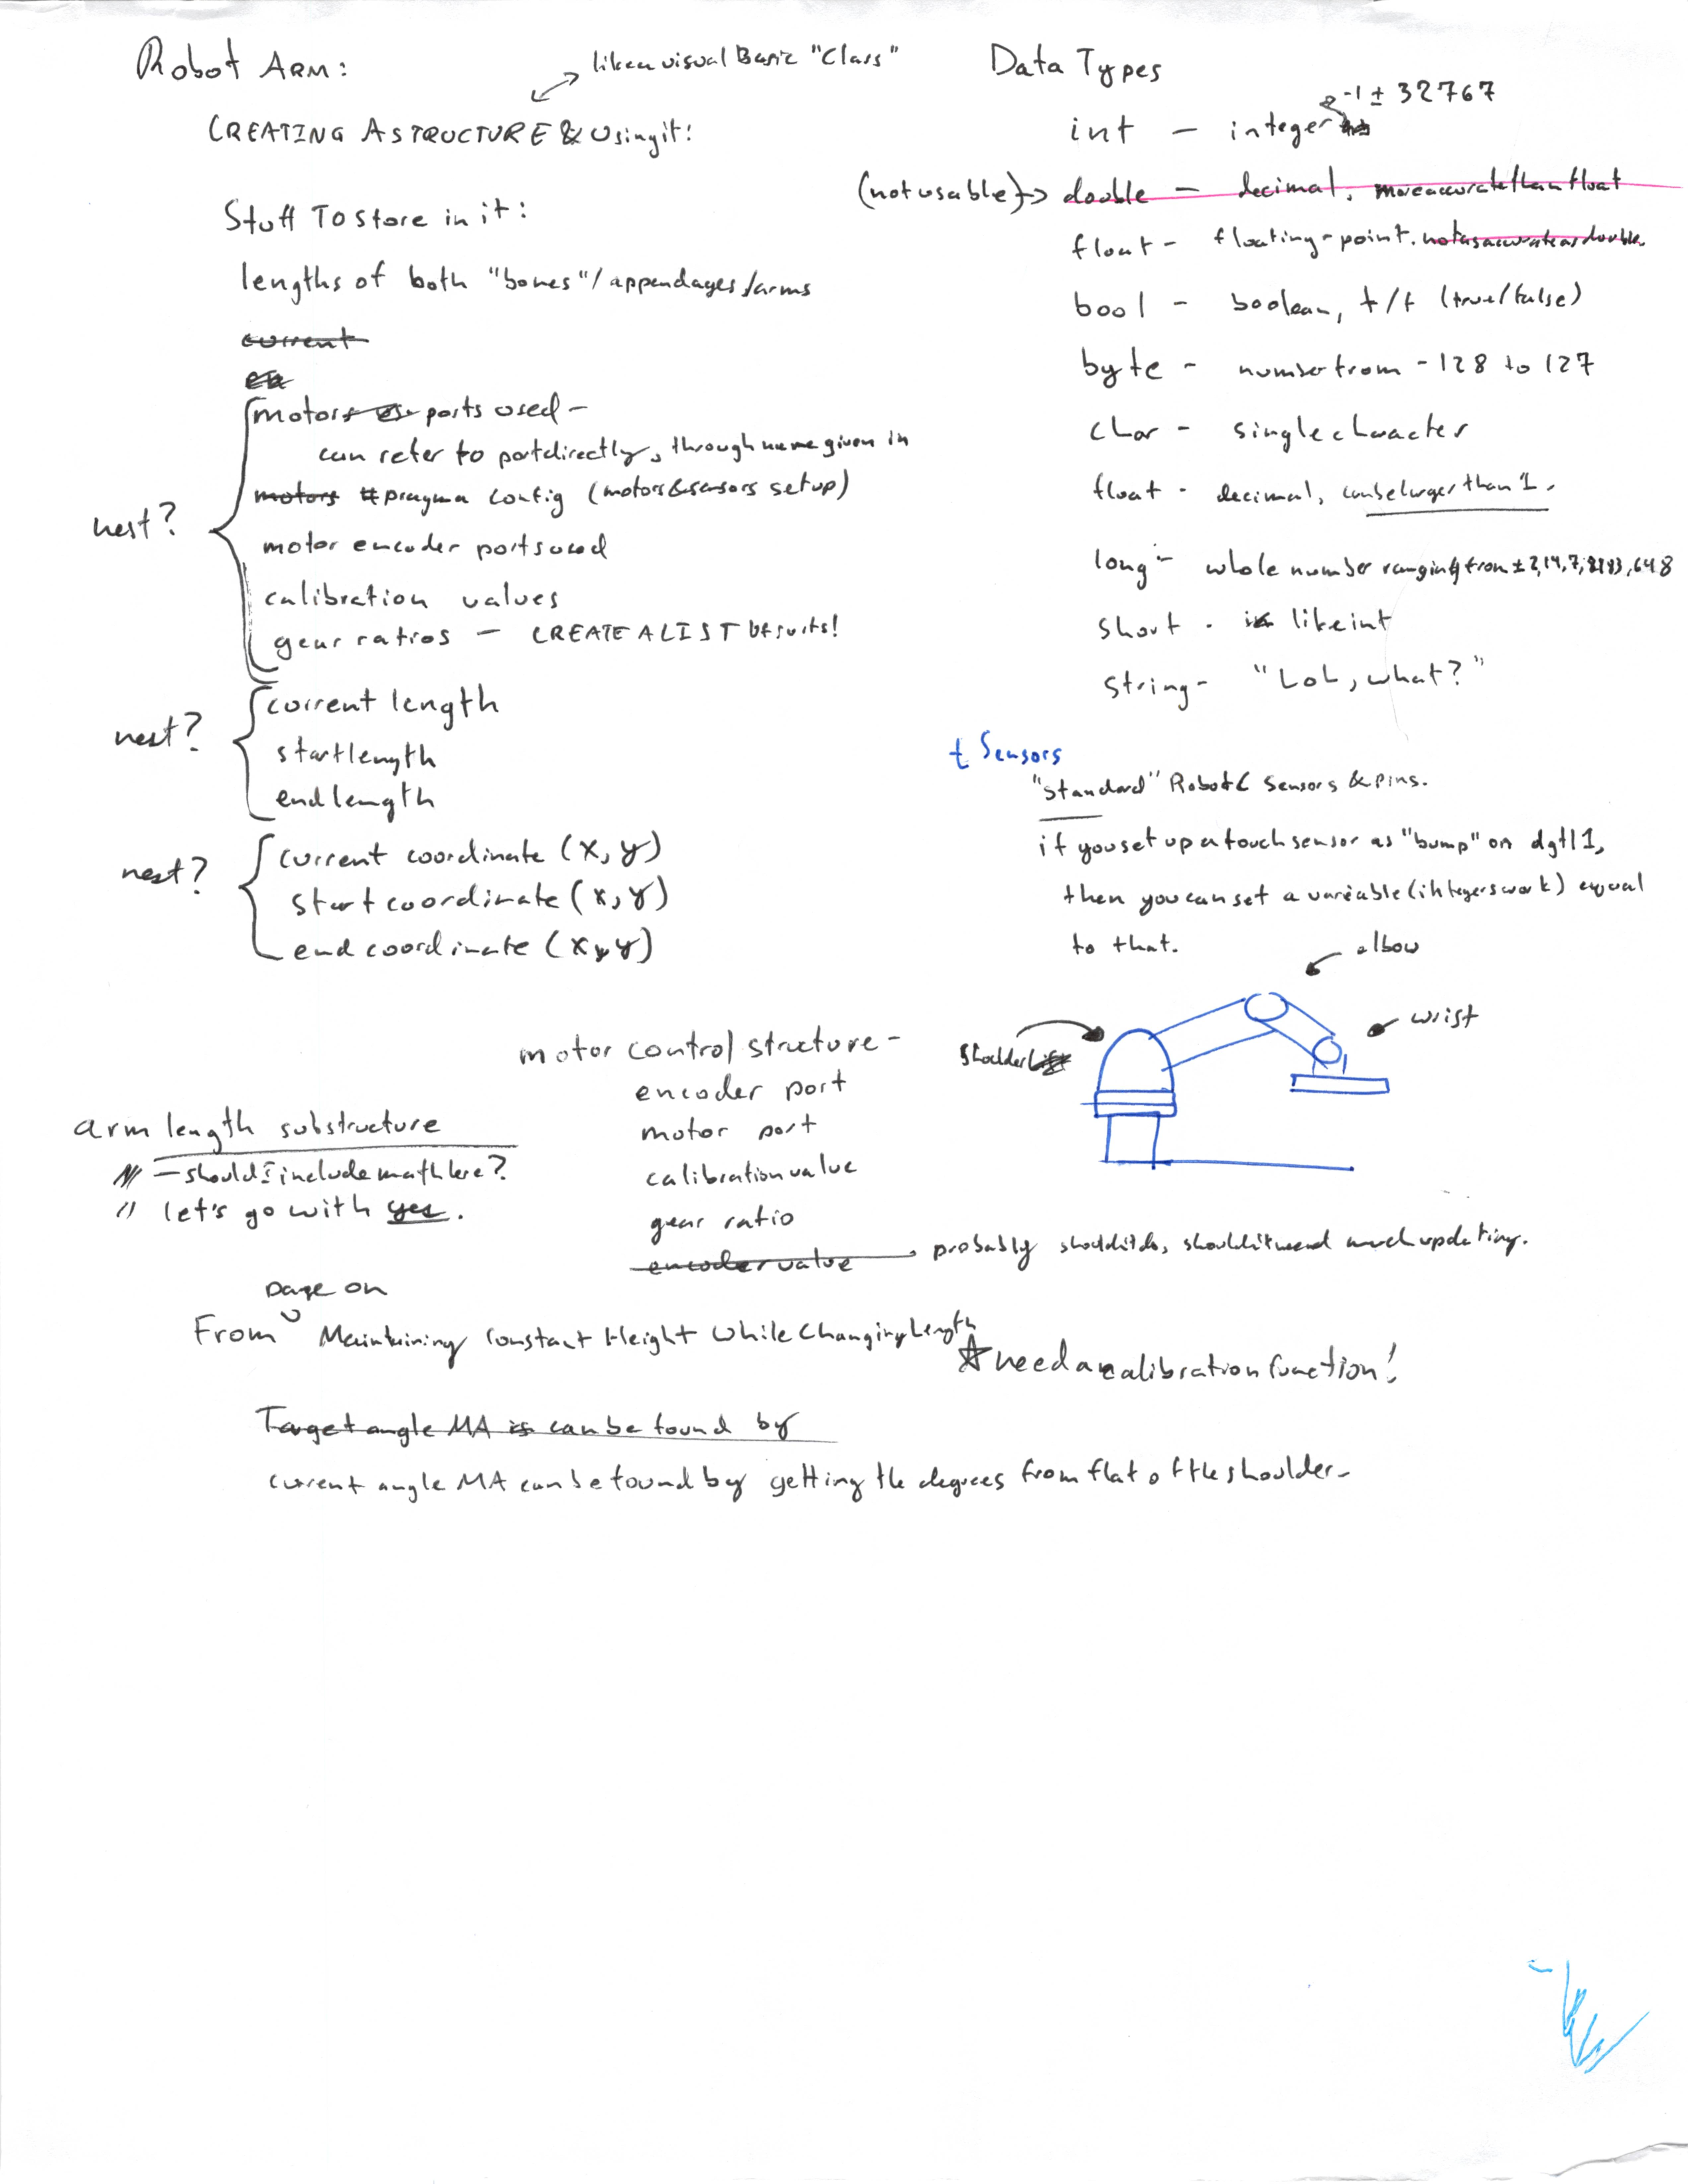 Robot Arm:
like a visual Basic "Class"
CREATING A STRUCTURE & Using it!
Stuff To store in it:
lengths of both "bones"/appendages/arms
current
motors ports used -
can refer to port directly, through name given in
motors #pragma config (motors & sensors setup)
nest?
motor encoder ports used
calibration values
gear ratios - CREATE A LIST
nest?
current length
start length
end length
nest?
current coordinate (x, y)
start coordinate (x, y)
end coordinate (x, y)
Data Types
-1 ± 32767
int - integer
(not usable) → double - decimal, more accurate than float
float - floating-point. not as accurate as double.
bool - boolean, t/f (true/false)
byte - number from -128 to 127
char - single character
float - decimal, can be larger than 1.
long - whole number ranging from
short - like int
string - "LoL, what?"
t Sensors
"Standard" RobotC sensors & pins.
if you set up a touch sensor as "bump" on dgtl1,
then you can set a variable (integers work) equal
to that.
elbow
wrist
Shoulder
motor control structure -
encoder port
motor port
calibration value
gear ratio
encoder value probably should it do, should it need much updating.
arm length substructure
// - should I include math here?
// let's go with yes.
page on
From Maintaining Constant Height While Changing Length
☆ need a calibration function!
Target angle MA is can be found by
current angle MA can be found by getting the degrees from flat of the shoulder-